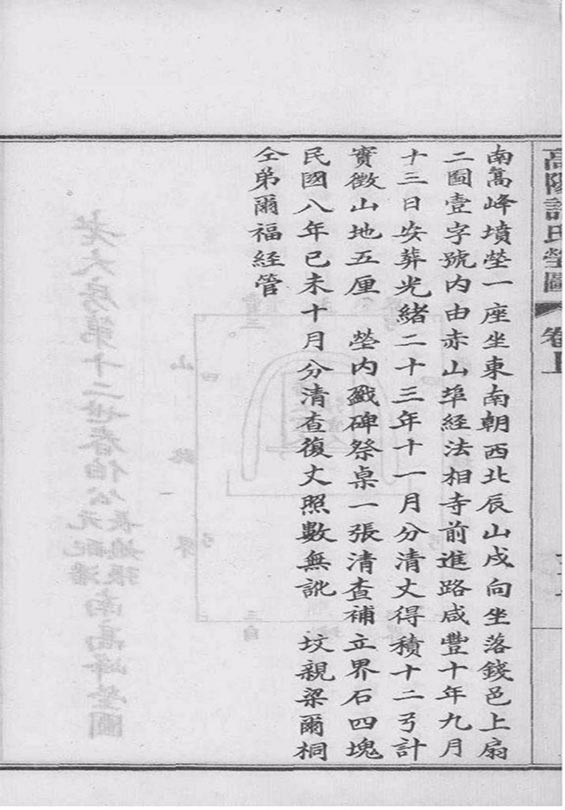 高陽許氏塋圖 卷上
南高峰墳塋一座坐東南朝西北辰山戌向坐落錢邑上扇
二圖壹字號內由赤山埠經法相寺前進路咸豐十年九月
十三日安葬光緒二十三年十一月分清丈得積十二弓計
實徵山地五厘 塋內戤碑祭桌一張清查補立界石四塊
民國八年已未十月分清查復丈照數無訛 坟親梁爾桐
仝弟爾福經管